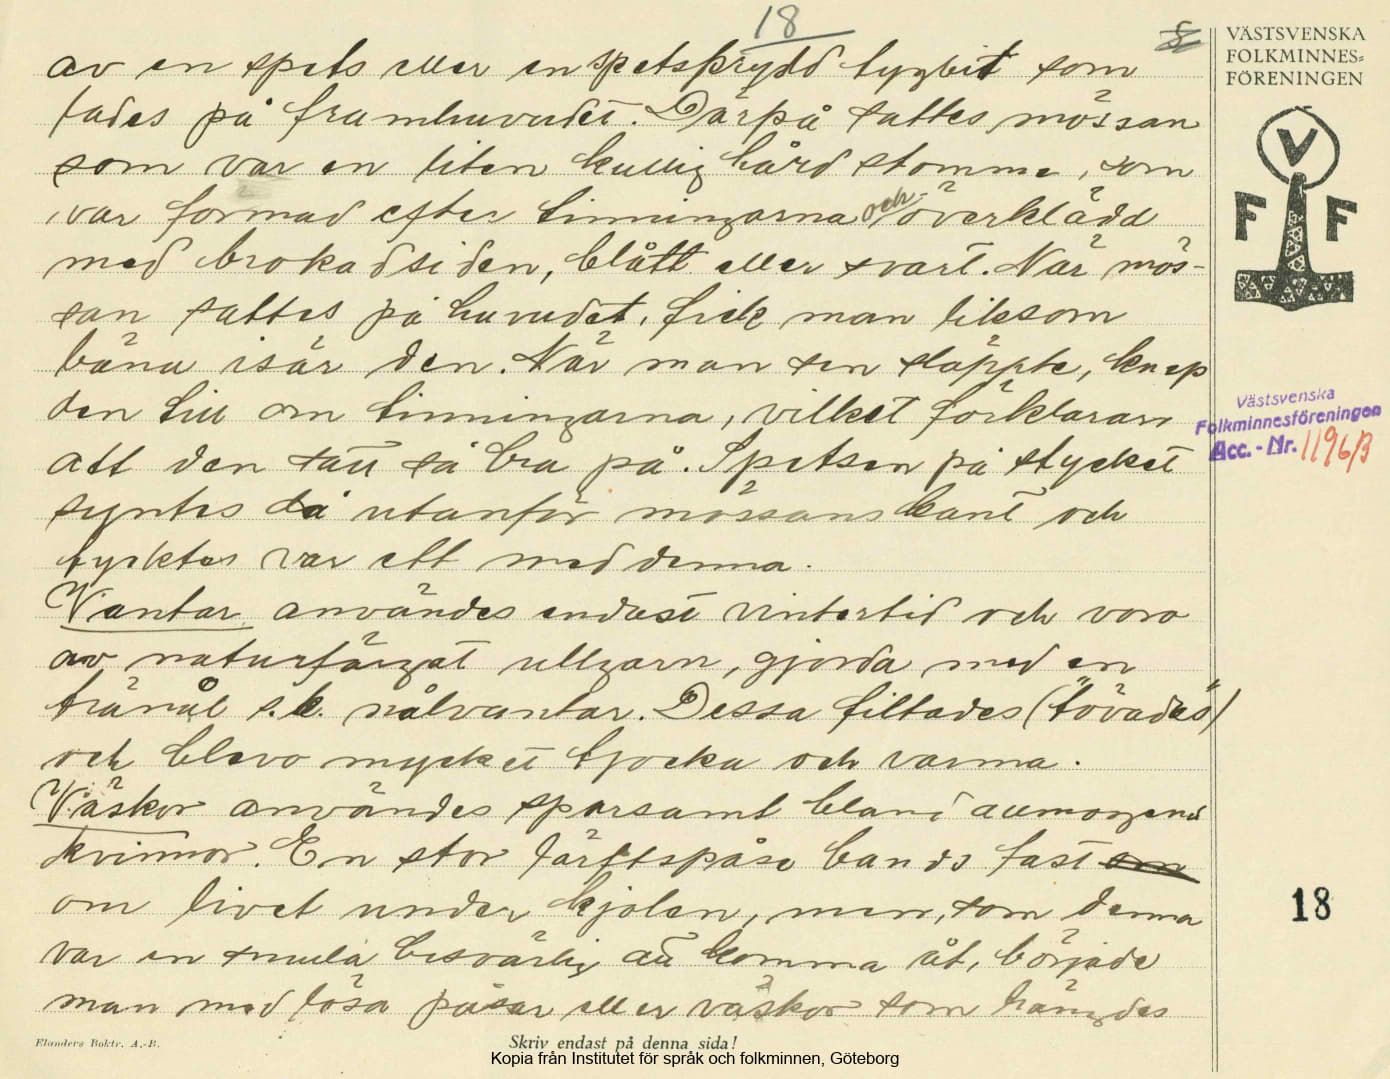 18
8
VÄSTSVENSKA
FOLKMINNES=
FÖRENINGEN
V
F F
av en spets eller en spetsprydd tygbit som
lades på framhuvudet. Därpå sattes mössan
som var en liten kullig hård stomme, som
var formad efter tinningarna och överklädd
med brokadsiden, blått eller svart. När mös-
san sattes på huvudet, fick man liksom
bäna isär den. När man sen släppte, knep
den till om tinningarna, vilket förklarar
att den satt så bra på. Spetsen på stycket
syntes då utanför mössans kant och
tycktes var ett med denna.
Vantar användes endast vintertid och voro
av naturfärgat ullgarn, gjorda med en
tränål s.k. nålvantar. Dessa filtades ("tövades")
och blevo mycket tjocka och varma.
Väskor användes sparsamt bland allmogens
kvinnor. En stor lärftspåse bands fast om
om livet under kjolen, men, som denna
var en smula besvärlig att komma åt, började
man med lösa påsar eller väskor som hängdes
Västsvenska
Folkminnesföreningen
Acc. - Nr. 1196/3
18
Elanders Boktr. A.-B.
Skriv endast på denna sida!
Kopia från Institutet för språk och folkminnen, Göteborg